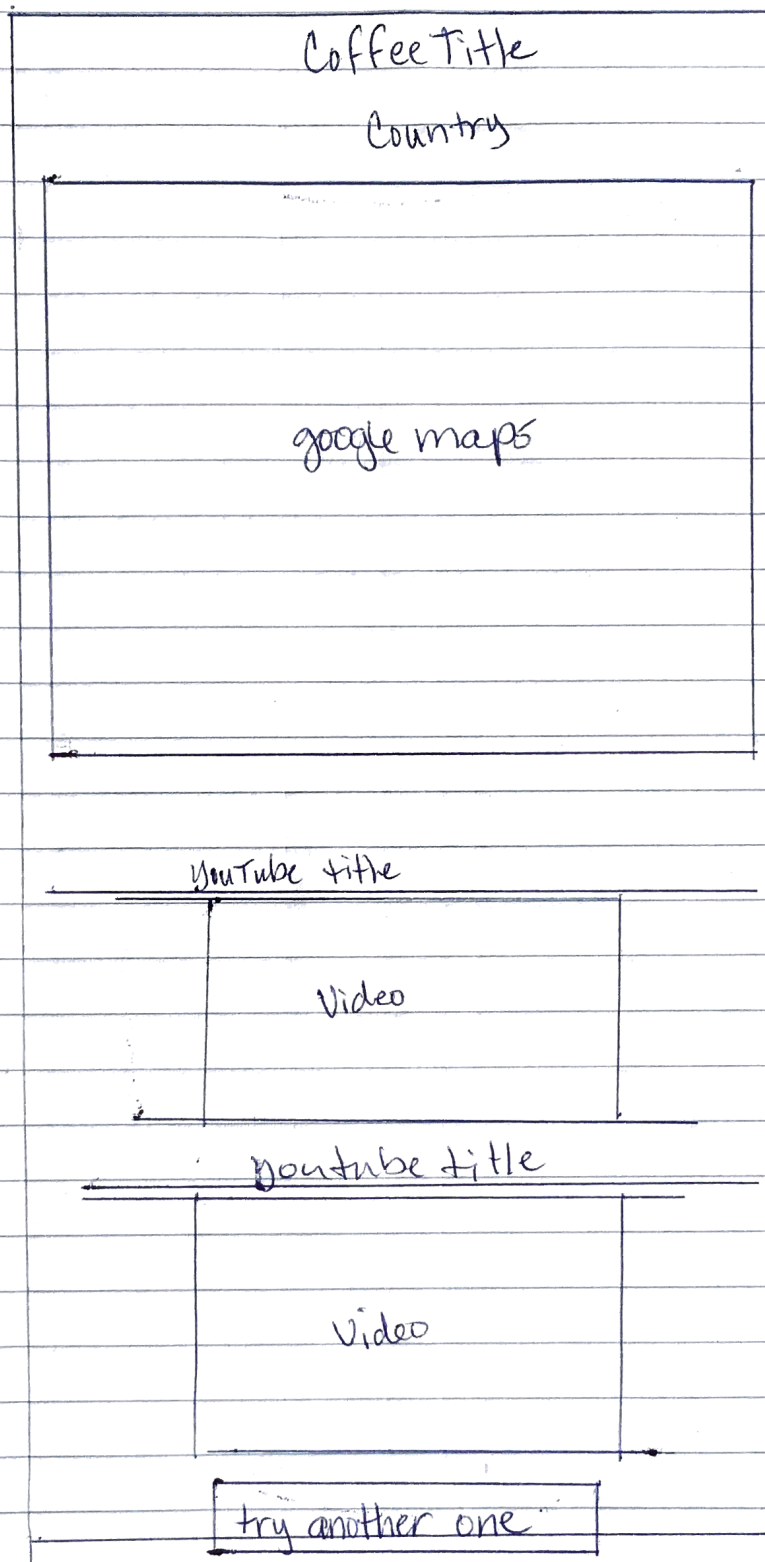 Coffee Title
Country
google maps
YouTube title
Video
youtube title
Video
try another one